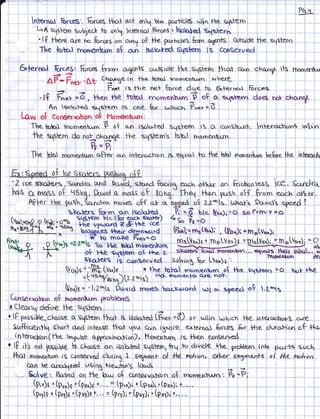 Pg.4
Internal Forces: Forces that act only b/w particles w/in the system
↳ A system subject to only Internal Forces = Isolated System
- If there are no forces on any of the particles from agents outside the system,
The total momentum of an Isolated System is Conserved
External Forces: Forces from agents outside the system that can change its momentum
ΔP⃗ = F⃗net · Δt Change in the total momentum where
F⃗net is the net force due to External Forces
- If F⃗net = 0⃗, then the total momentum P⃗ of a system does not change
An isolated system is one for which F⃗net = 0⃗
Law of Conservation of Momentum:
The total momentum P⃗ of an isolated system is a constant. Interactions w/in
the system do not change the system's total momentum
P⃗f = P⃗i
The total momentum after an interaction is equal to the total momentum before the interaction
Ex: Speed of Ice Skaters pushing off
2 ice skaters, Sandra and David, stand facing each other on frictionless ice. Sandra
has a mass of 45kg, David a mass of 80kg. They then push off from each other.
After the push, Sandra moves off at a speed of 2.2m/s. What's David's speed?
Skaters form an isolated
system b/c for each skater
the upward n⃗ of the ice
balances their downward
w⃗ to make F⃗net = 0
So the total momentum
of the system of the 2
Skaters is conserved
Find:
Solving for (VDx)f:
• The total momentum of the system = 0 but the
ind. momenta are not.
(VDx)f = -1.2 m/s David moves backward w/ a speed of 1.2 m/s
Conservation of momentum problems
• Clearly define the system
• If possible, choose a system that is isolated (F⃗net = 0⃗) or w/in which the interactions are
Sufficiently short and intense that you can ignore external forces for the duration of the
interaction (the impulse approximation). Momentum is then conserved
• If it's not possible to choose an isolated system, try to divide the problem into parts such
that momentum is conserved during 1 segment of the motion. Other segments of the motion
can be analyzed using Newton's laws
Solve: Based on the law of conservation of momentum: P⃗f = P⃗i
(P1x)f + (P2x)f + (P3x)f + ... = (P1x)i + (P2x)i + (P3x)i + ...
(P1y)f + (P2y)f + (P3y)f + ... = (P1y)i + (P2y)i + (P3y)i + ...